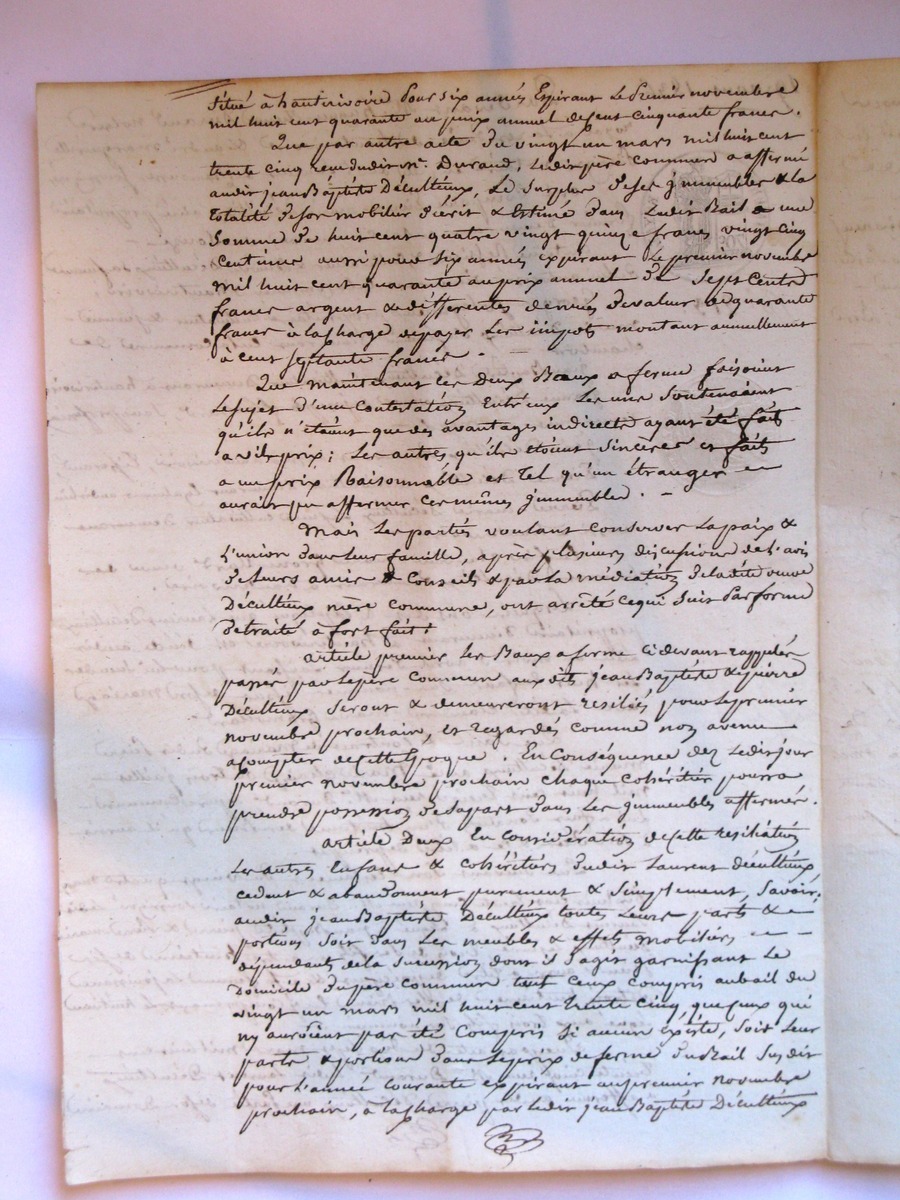 situé à hauterivoire pour six années Expirant le premier novembre
mil huit cent quarante au prix annuel de cent cinquante francs.
Que par autre acte du vingt un mars mil huit cent
trente cinq reçu dudit Me. Durand, ledit père commun a affermé
audit jean Baptiste Décultieux, le surplus de ses jmmeubles & la
totalité de son mobilier décrit & Estimé dans ledit Bail a une
somme de huit cent quatre vingt quinze francs vingt cinq
centimes aussi pour six années expirant le premier novembre
mil huit cent quarante au prix annuel de sept cents
francs argent & differentes denrées de valeur de quarante
francs à la charge de payer les impots montant annuellement
à cent septante francs.
Que maintenant ces deux Beaux a ferme faisoint
le sujet d'une contestation Entr'eux les uns soutenaient
qu'ils n'étoient que des avantages indirects ayant été faits
a vils prix; les autres qu'ils étoient sincères et faits
a un prix Raisonnable et tel qu'un étranger
aurait pu affermer ces mêmes jmmeubles.
Mais les parties voulant conserver la paix &
l'union dans leur famille, après plusieurs discussions de l'avis
de leurs amis & conseils & par la médiation de ladite veuve
Décultieux mère commune, ont arrêté ce qui suit par forme
de traité à fort fait:
article premier les Baux a ferme ci devant rappelés
passés par le père commun auxdits jean Baptiste & pierre
Décultieux seront & demeureront resiliés pour le premier
novembre prochain, et regardés comme non avenus
a compter de cette Epoque. En conséquence dez ledit jour
premier novembre prochain chaque cohéritier pourra
prendre possession de sa part dans les jmmeubles affermés.
article Deux En considération de cette resiliation
les autres Enfans & cohéritiers dudit Laurent décultieux
cedent & abandonnent purement & simplement, savoir;
audit jean Baptiste Décultieux toutes leurs parts &
portions soit dans les meubles & effets mobiliers
dépendants de la succession dont il s'agit garnissant le
domicile du père commun tant ceux compris au bail du
vingt un mars mil huit cent trente cinq que ceux qui
n'y auroient pas été compris si aucun éxiste, soit leur
parts & portions dans le prix de ferme du Bail susdit
pour l'année courante expirant au premier novembre
prochain, à la charge par ledit jean Baptiste Décultieux